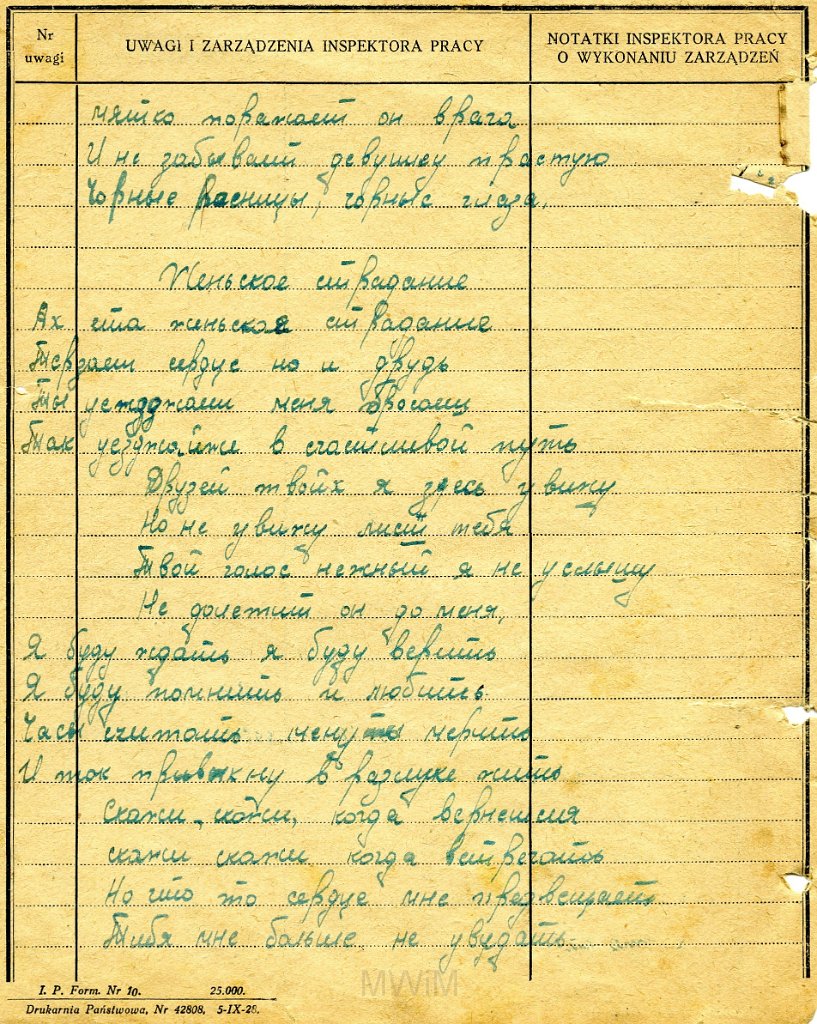 Nr uwagi
UWAGI I ZARZĄDZENIA INSPEKTORA PRACY
NOTATKI INSPEKTORA PRACY O WYKONANIU ZARZĄDZEŃ
поражает он врага
И не забывает девушку прастую
Чорные расницы, чорные глаза.
Женьское страдание
Ах ета женьское страдание
Терзает сердце но и
Ты меня бросаеш
Так в счастливой путь
Друзей твойх я здесь увижу
Но не увижу лист тебя
Твой голос нежный я не услышу
Не долетит он до меня,
Я буду ждать я буду верить
Я буду помнить и любить
Часы считать менуты мерить
И так привыкну в разлуке жить
Скажи, скажи, когда вернешся
скажи скажи когда встречать
Но что то сердце мне предвещает
Тибя мне больше не увудать
I. P. Form. Nr 10. 25.000.
Drukarnia Państwowa, Nr 42808, 5-IX-28.
MWiM